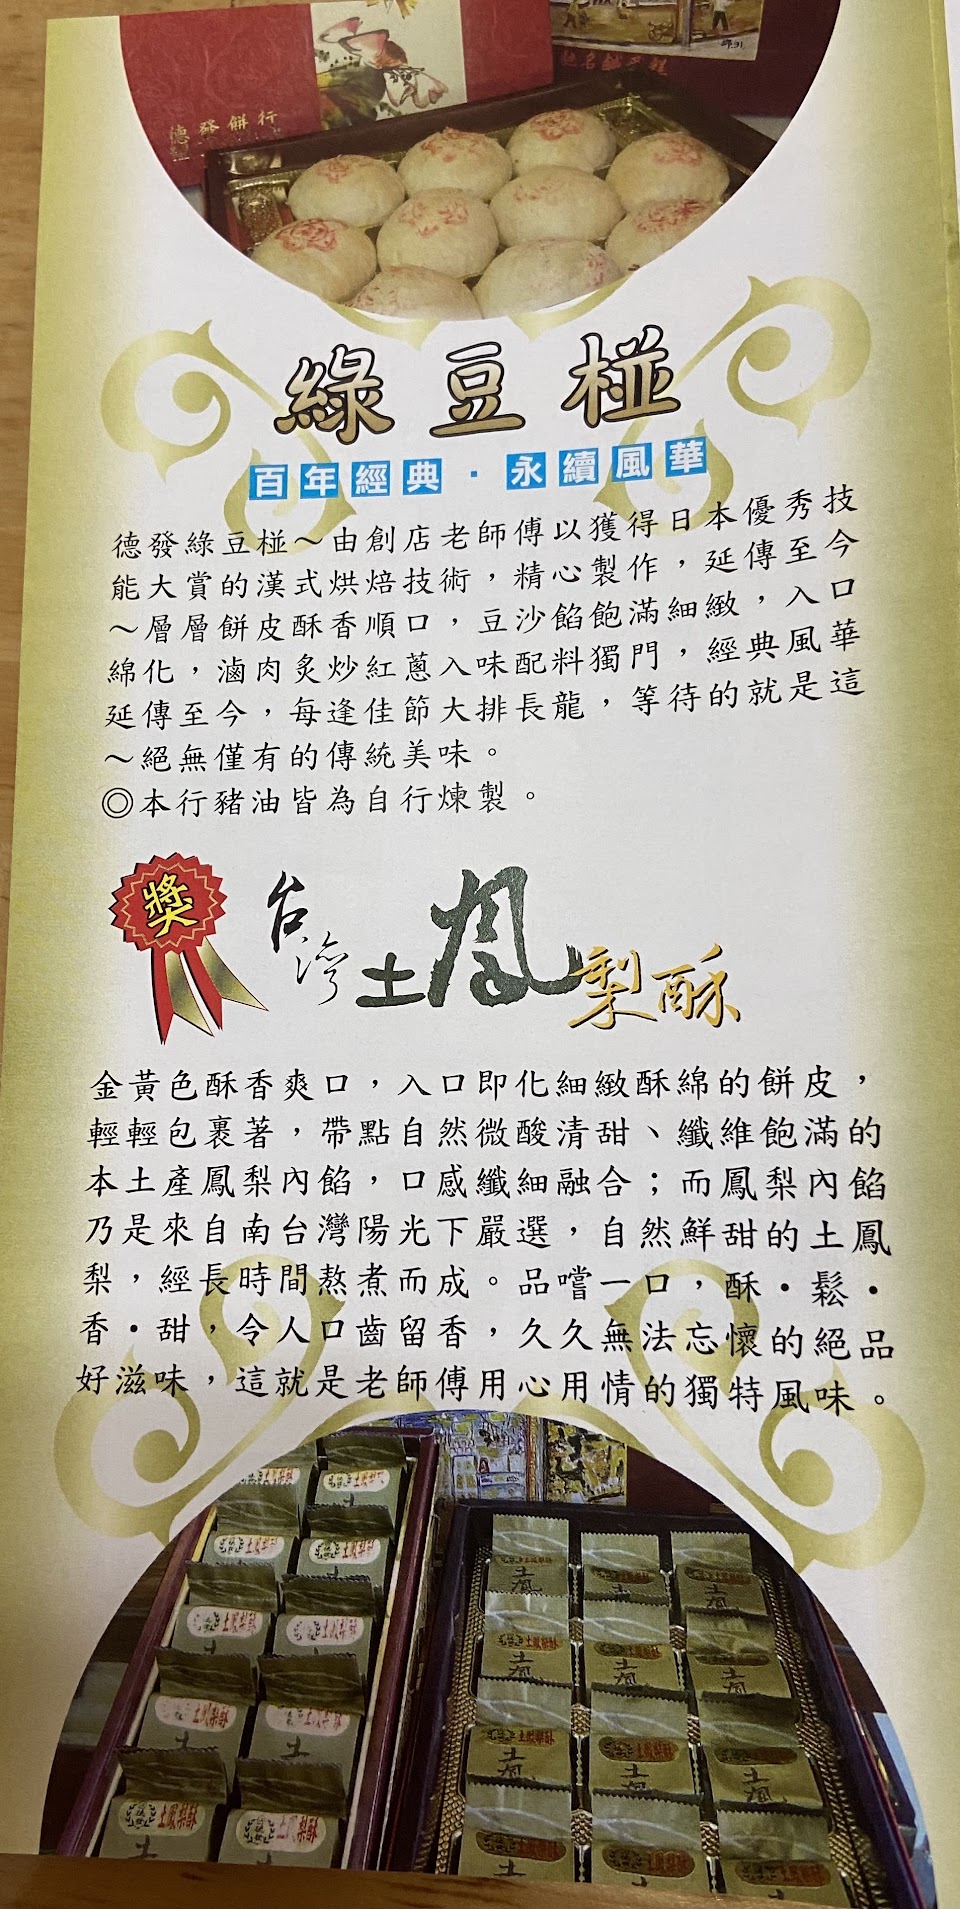 德發餅行
綠豆椪
百年經典·永續風華
德發綠豆椪～由創店老師傅以獲得日本優秀技
能大賞的漢式烘焙技術，精心製作，延傳至今
～層層餅皮酥香順口，豆沙餡飽滿細緻，入口
綿化，滷肉炙炒紅蔥入味配料獨門，經典風華
延傳至今，每逢佳節大排長龍，等待的就是這
～絕無僅有的傳統美味。
◎本行豬油皆為自行煉製。
獎
台灣土鳳梨酥
金黃色酥香爽口，入口即化細緻酥綿的餅皮，
輕輕包裹著，帶點自然微酸清甜、纖維飽滿的
本土產鳳梨內餡，口感纖細融合；而鳳梨內餡
乃是來自南台灣陽光下嚴選，自然鮮甜的土鳳
梨，經長時間熬煮而成。品嚐一口，酥·鬆·
香·甜，令人口齒留香，久久無法忘懷的絕品
好滋味，這就是老師傅用心用情的獨特風味。
土鳳梨酥